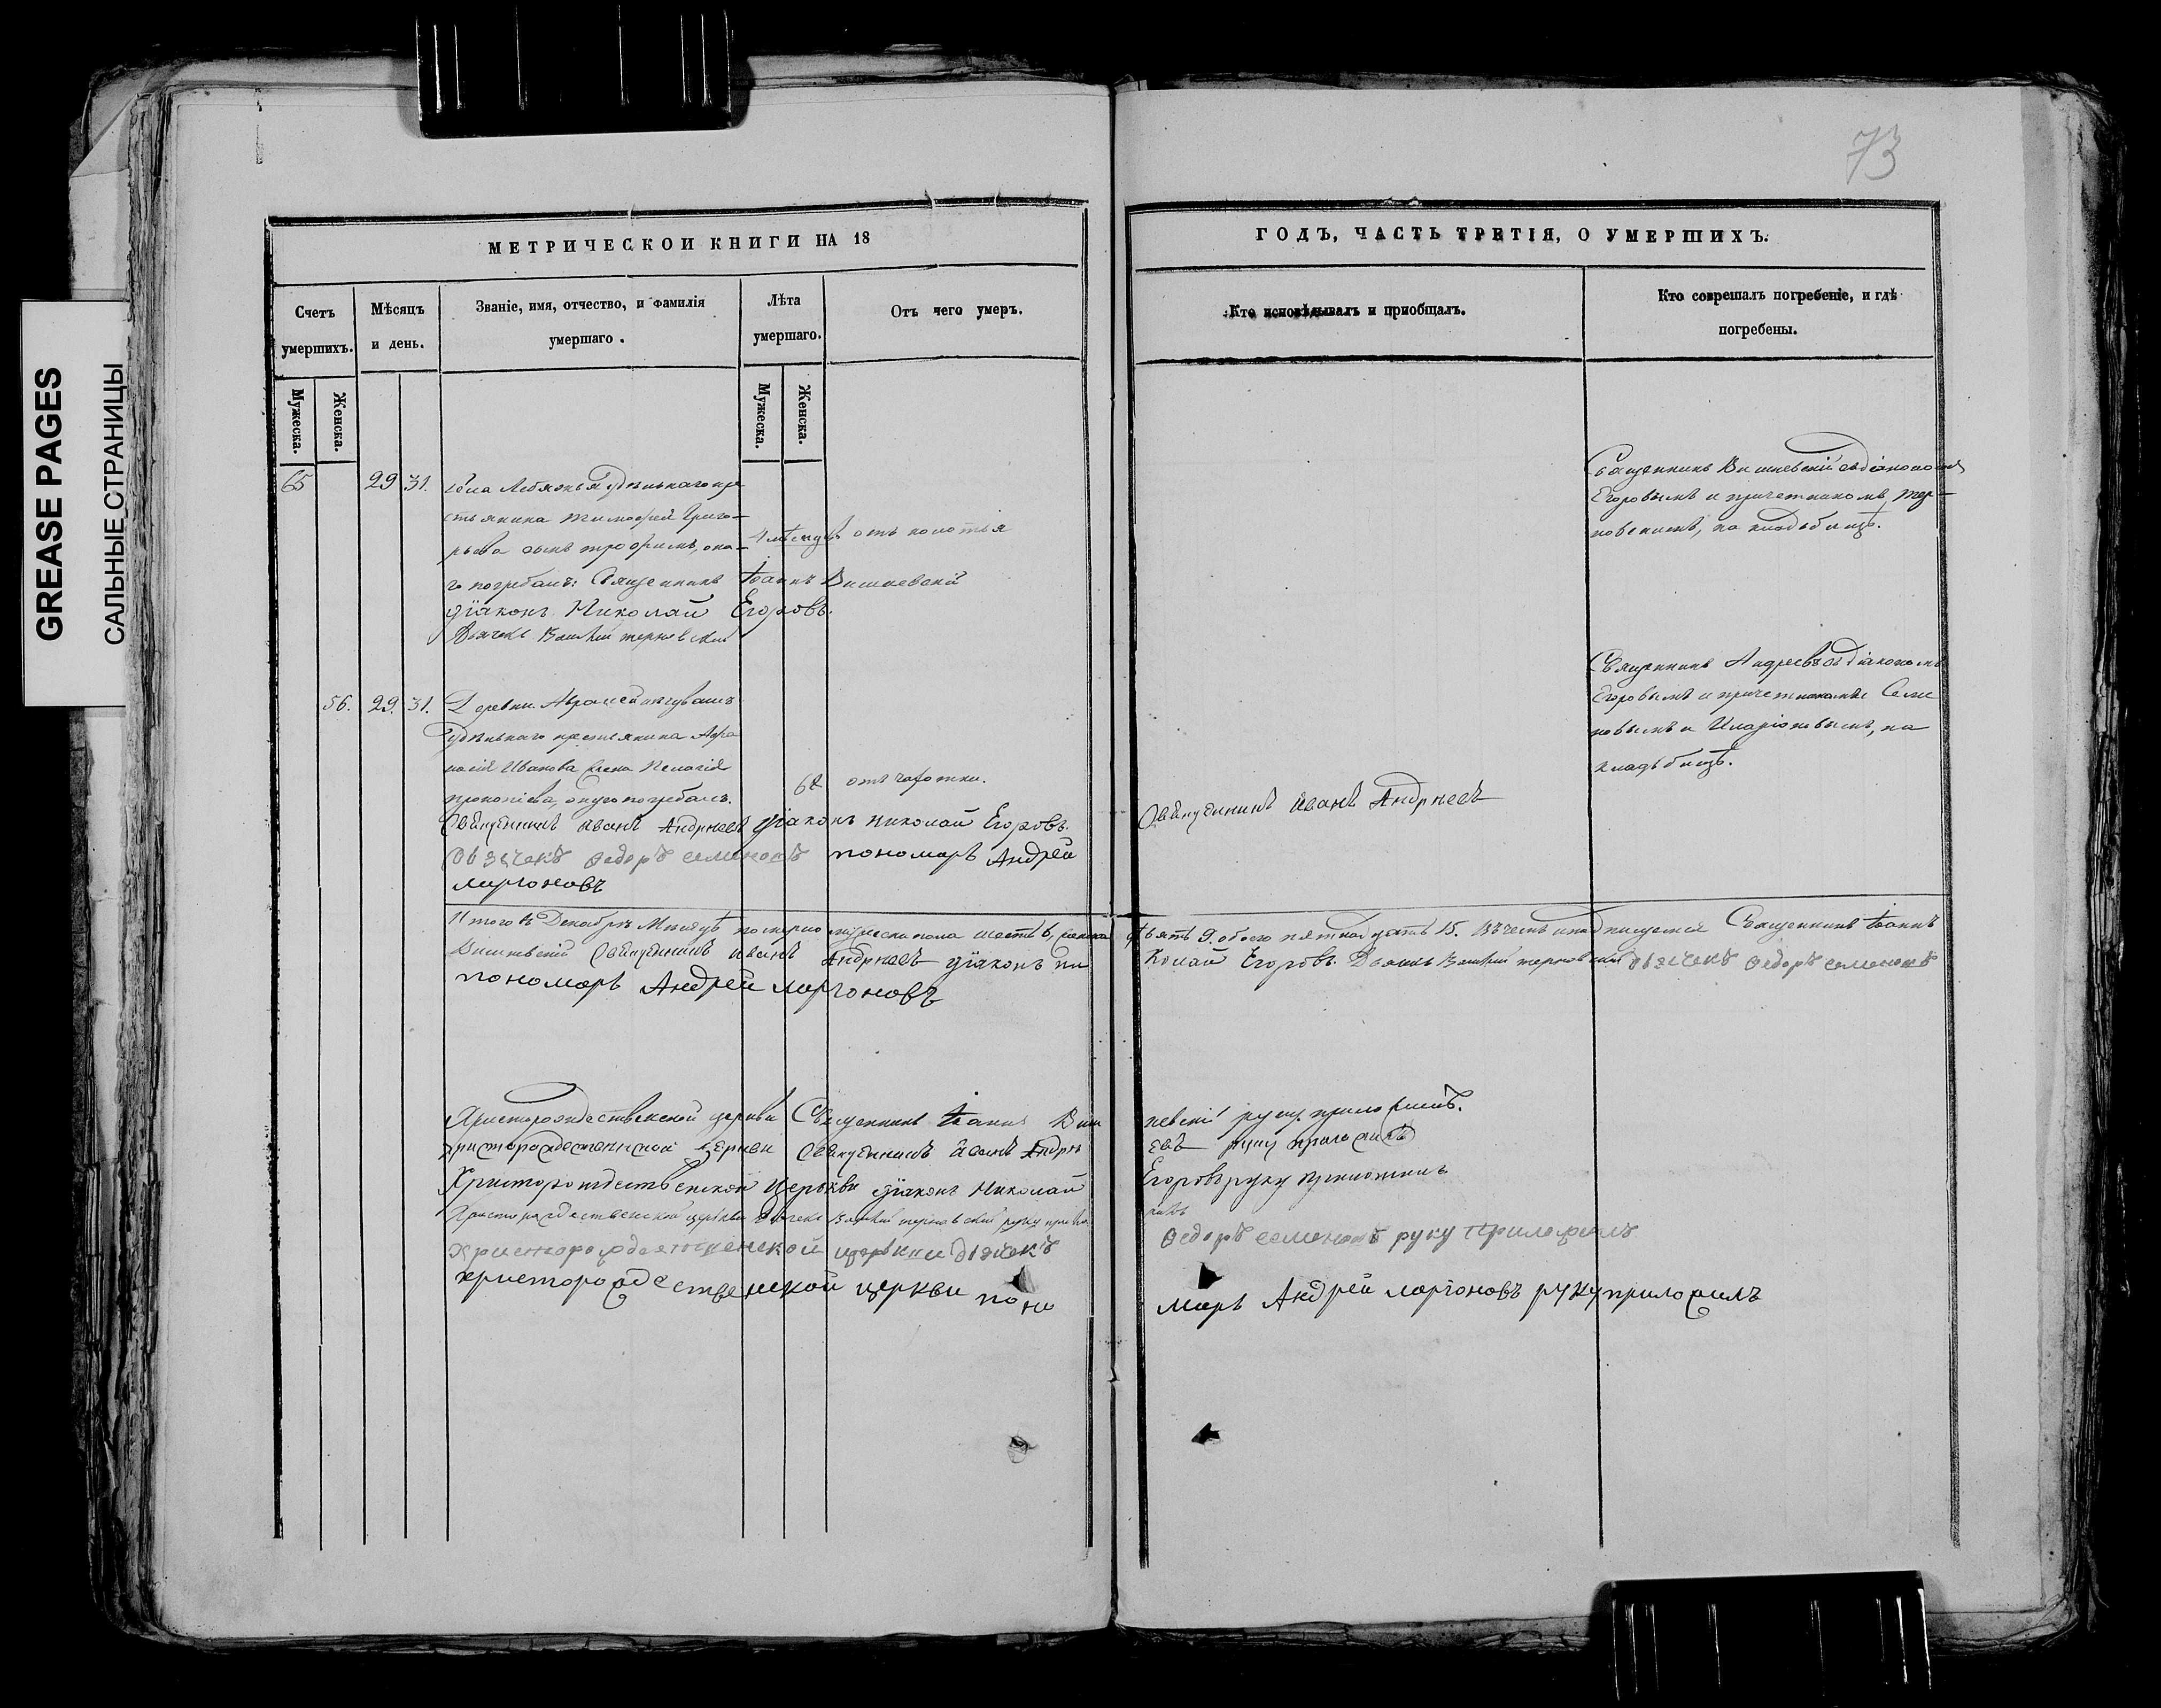 GREASE PAGES
САЛЬНЫЕ СТРАНИЦЫ
73
МЕТРИЧЕСКОЙ КНИГИ НА 18
Счетъ умершихъ.
Мужеска.
Женска.
Мѣсяцъ и день.
Званіе, имя, отчество, и фамилія
умершаго.
Лѣта умершаго.
Мужеска.
Женска.
Отъ чего умеръ.
ГОДЪ, ЧАСТЬ ТРЕТІЯ, О УМЕРШИХЪ.
Кто исповѣдывалъ и приобщалъ.
Кто соврешалъ погребеніе, и гдѣ
погребены.
65 29 31. села Лебяжья Удѣльнаго кре
стьянина Тимофей Григо-
рьева сынъ Трофимъ, она-
го погребалъ: Священникъ Іоаннъ Вишневскій
діаконъ Николай Егоровъ.
Дьячекъ Терновскій
отъ колотья
Священникъ Вишневскій съ діакономъ
Егоровымъ и причетникомъ Тер-
новскимъ, на кладбищѣ.
56. 29. 31. Деревни
Удѣльнаго крестьянина Афа
насія Иванова жена Пелагія
Прокопіева, оную погребалъ.
отъ чахотки.
Священникъ Иванъ Андреевъ діаконъ Николай Егоровъ.
дьячекъ Федоръ Семеновъ пономарь Андрей
ларіоновъ
Священникъ Иванъ Андреевъ
Священникъ Андреевъ съ діакономъ
Егоровымъ и причетниками Семе
новымъ и Иларіоновымъ, на
кладбищѣ.
Итого въ Декабрѣ Мѣсяцѣ померло мужеска пола шесть 6, женска девять 9. обоего пятнадцать 15. Священникъ Іоаннъ
Вишневскій Священникъ Иванъ Андреевъ діаконъ Ни колай Егоровъ. Дьячекъ Терновскій дьячекъ Федоръ Семеновъ
пономарь Андрей ларіоновъ
Христорождественской церкви Священникъ Іоаннъ Виш невскій руку приложилъ.
христорождественской церкви священникъ Иванъ Андре евъ руку приложилъ
Христорождественской церкви діаконъ Николай Егоровъ руку приложилъ
Христорождественской церкви дьячекъ Терновскій руку прило жилъ
христорождественской церкви дьячекъ Федоръ Семеновъ руку приложилъ
христорождественской церкви поно марь Андрей ларіоновъ руку приложилъ